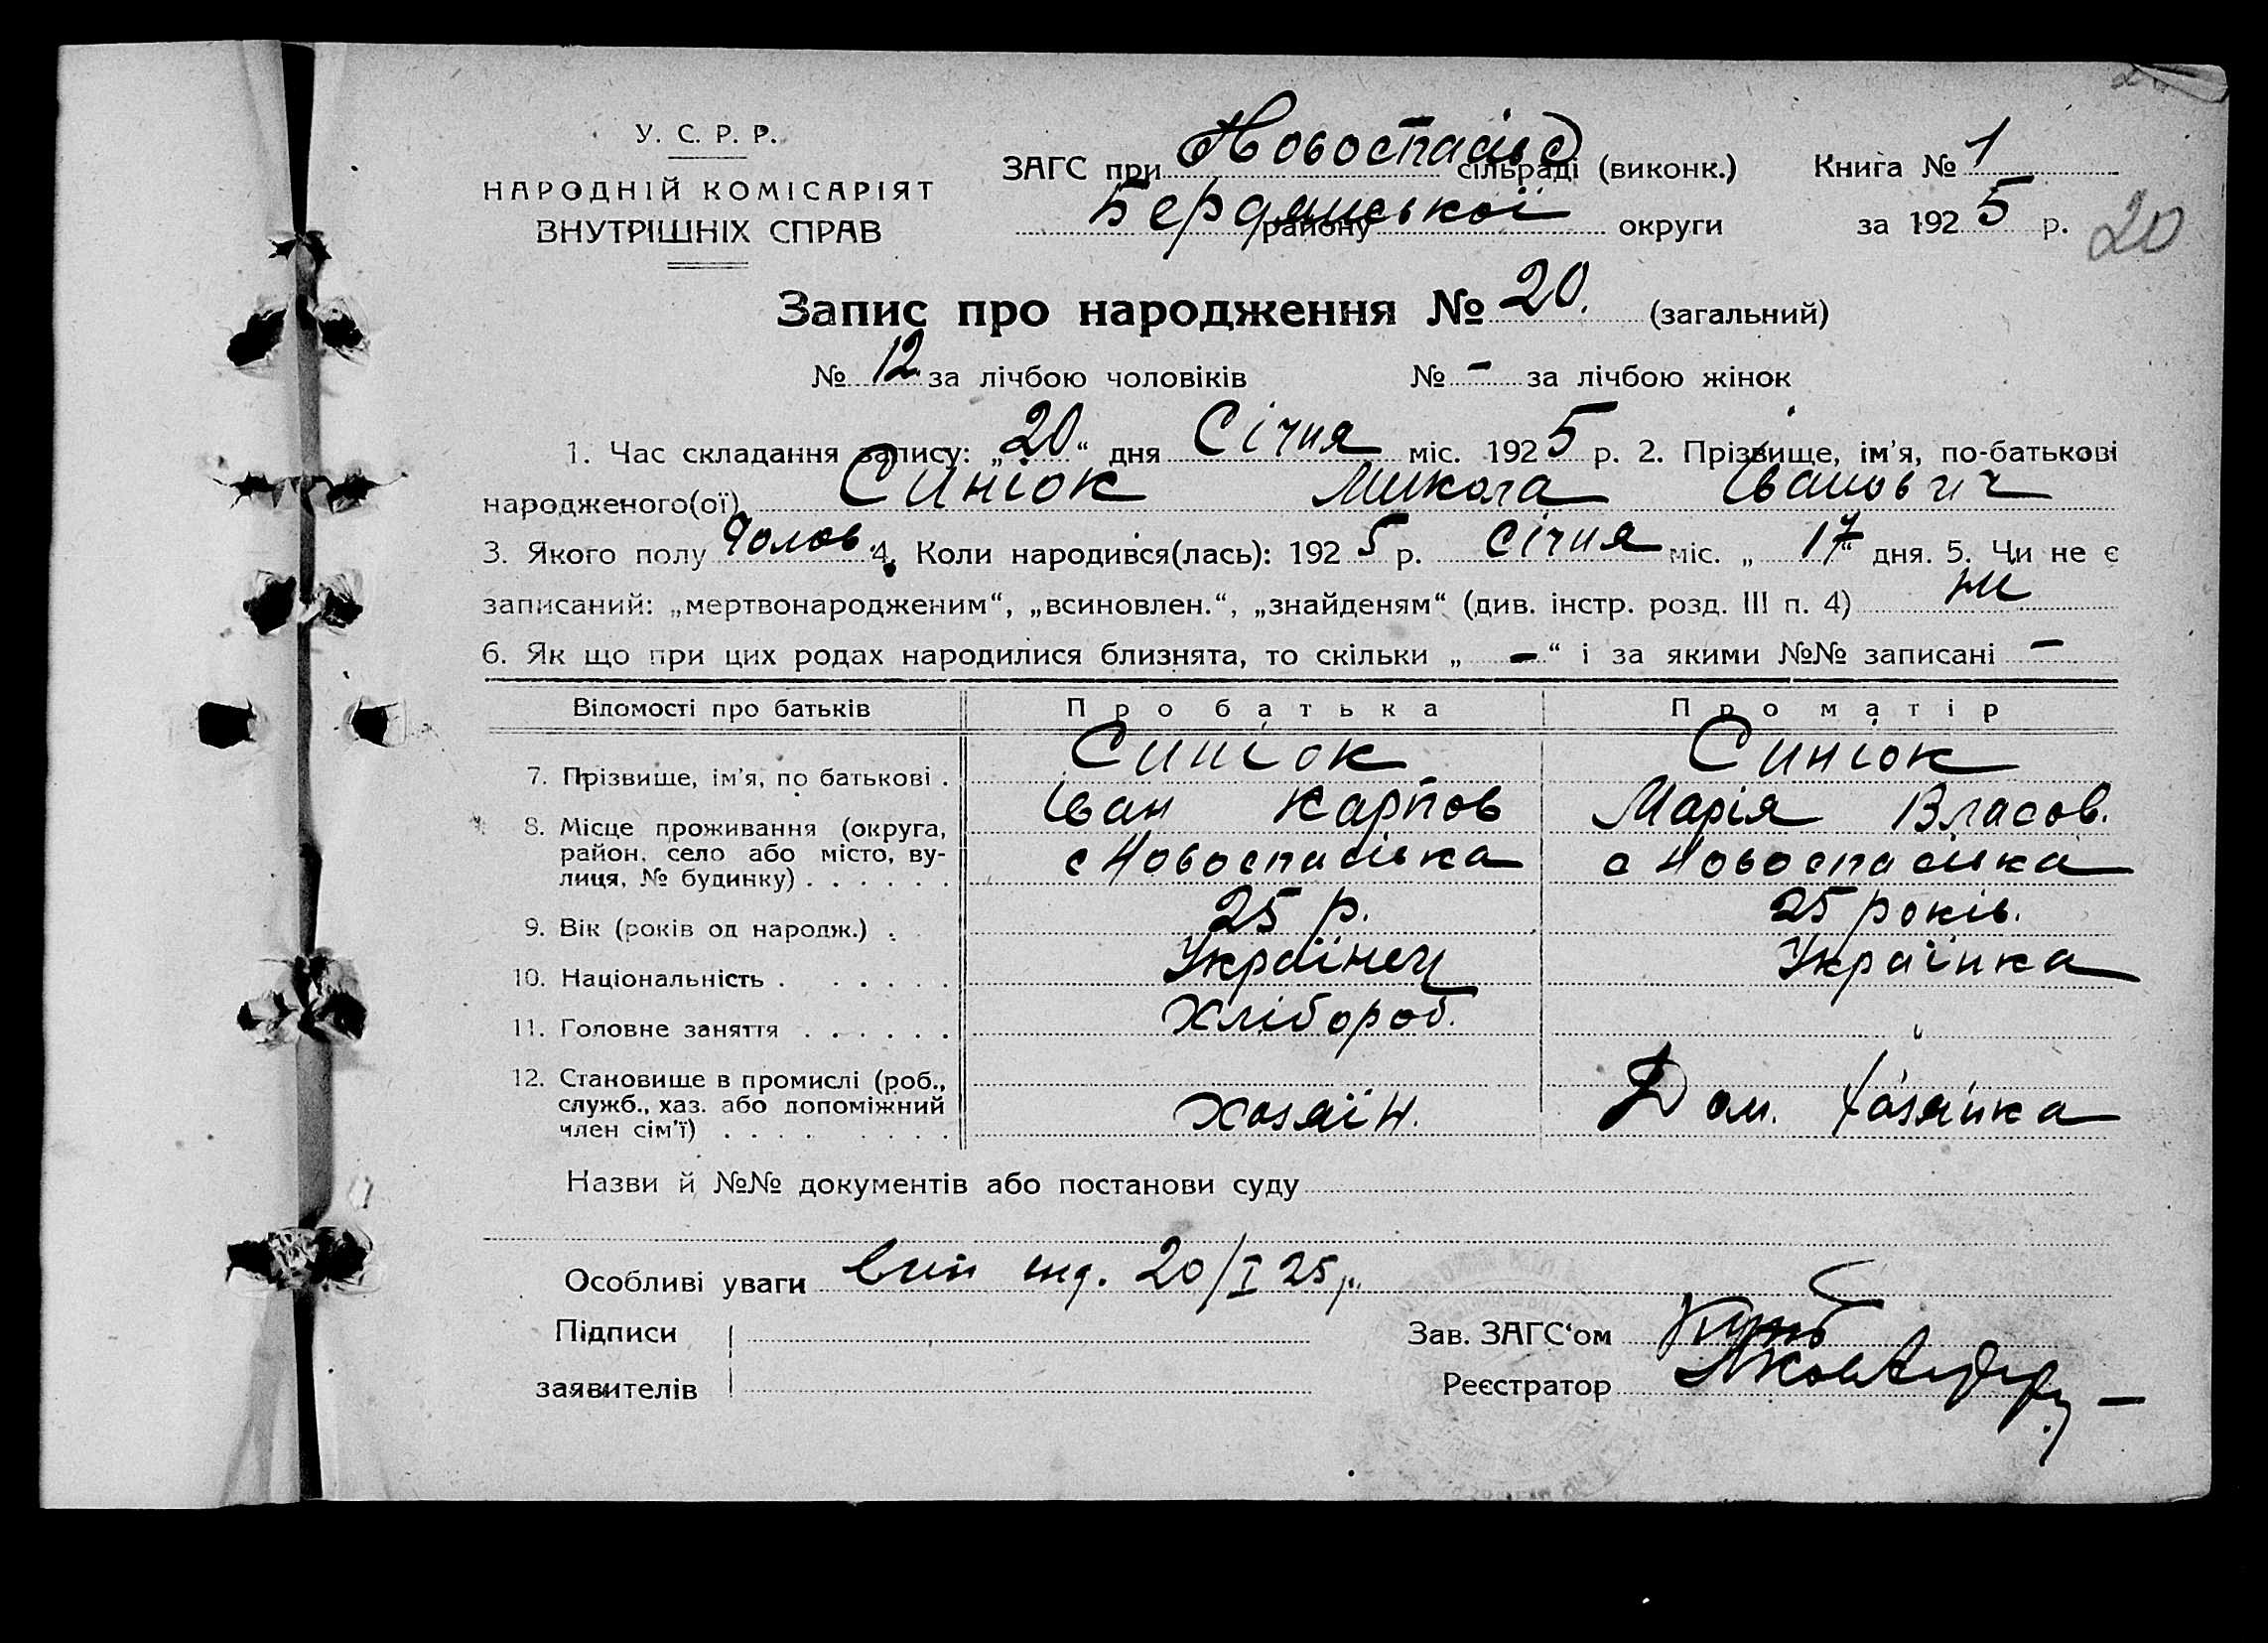 У. С. Р. Р.
НАРОДНІЙ КОМІСАРІЯТ
ВНУТРІШНІХ СПРАВ
ЗАГС при Новоспасівс сільраді (виконк.)
Бердянської району округи
Книга № 1
за 1925 р.
20
Запис про народження № 20. (загальний)
№ 12. за лічбою чоловіків № - за лічбою жінок
1. Час складання запису: „20“ дня Січня міс. 1925 р. 2. Прізвище, ім’я, по-батькові
народженого(ої) Синіок Микола Іванович
3. Якого полу Чолов. 4. Коли народився(лась): 1925 р. Січня міс. „17“ дня. 5. Чи не є
записаний: „мертвонародженим“, „всиновлен.“, „знайденям“ (див. інстр. розд. III п. 4) ни
6. Як що при цих родах народилися близнята, то скільки „-“ і за якими №№ записані -
Відомості про батьків Про батька Про матір
7. Прізвище, ім’я, по батькові . Синіок Синіок
Іван Карпов Марія Власов.
8. Місце проживання (округа,
район, село або місто, ву-
лиця, № будинку) . . . . . . с Новоспасівка с Новоспасівка
9. Вік (років од народж.) . 25 р. 25 років.
10. Національність . . . . . . Українец Українка
11. Головне заняття . . . . . . Хлібороб. "
12. Становище в промислі (роб.,
служб., хаз. або допоміжний
член сім’ї) . . . . . . . . Хозяїн. Дом. хозяйка
Назви й №№ документів або постанови суду
Особливі уваги вип 20/I 25 р.
Підписи
заявителів
Зав. ЗАГС‘ом
Реєстратор